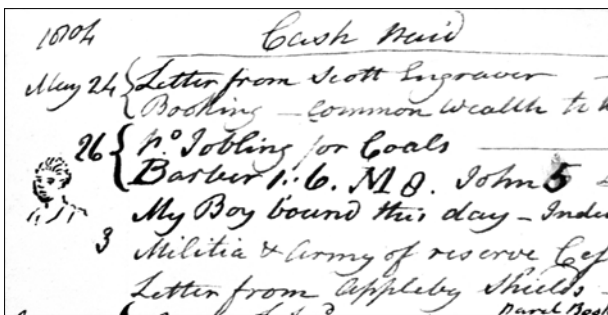 1804 Cash Paid
May 24 Letter from Scott Engraver —
Booking — common Wealth to
26 pd Jobling for Coals
Barber 1:6. M 8. John 5
My Boy bound this day – Inde
3 Militia & Army of reserve Cess
Letter from Appleby Shields –